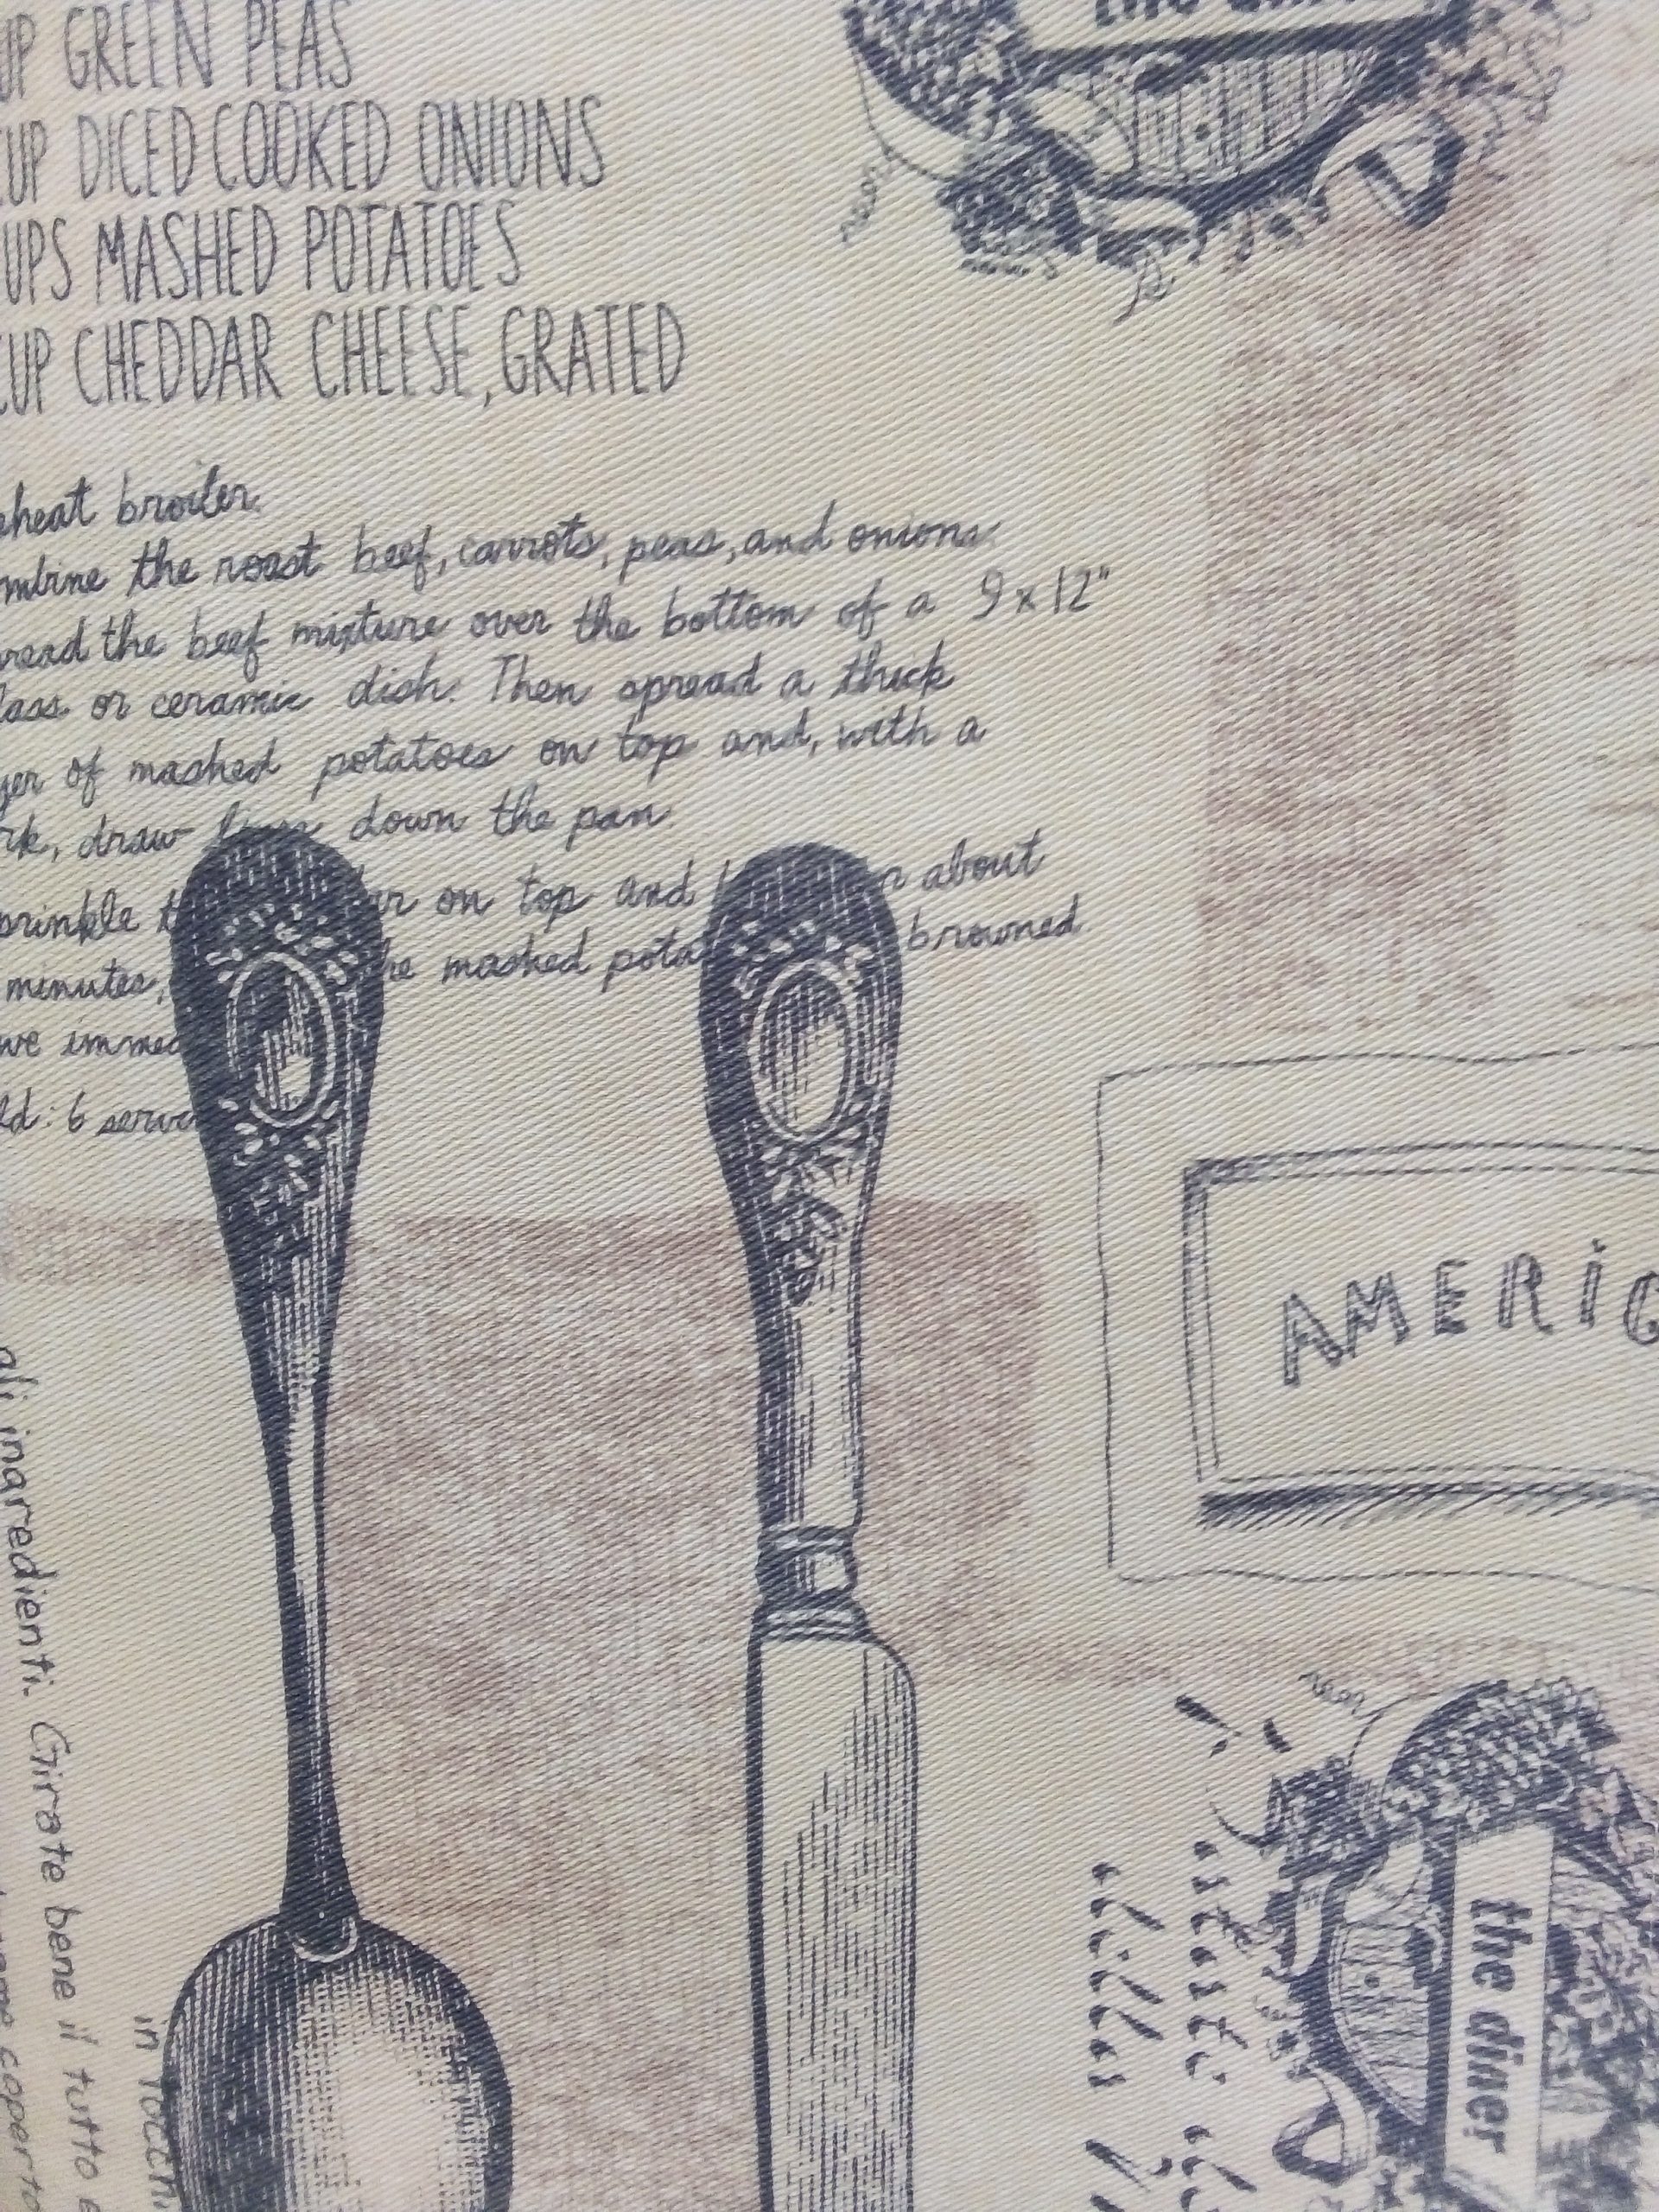 UP GREEN PEAS
CUP DICED COOKED ONIONS
UPS MASHED POTATOES
CUP CHEDDAR CHEESE, GRATED
eheat broiler.
mbine the roast beef, carrots, peas, and onions.
read the beef mixture over the bottom of a 9 x 12"
lass or ceramic dish. Then spread a thick
yer of mashed potatoes on top and, with a
rk, draw lines down the pan.
prinkle on top and about
minutes, he mashed pota browned
ve immed
ld: 6 servi
AMERIC
the diner
gli ingredienti. Girate bene il tutto e